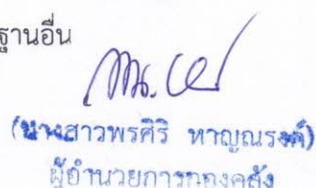 ฐานอื่น
(นางสาวพรศิริ หาญณรงค์)
ผู้อำนวยการกองคลัง